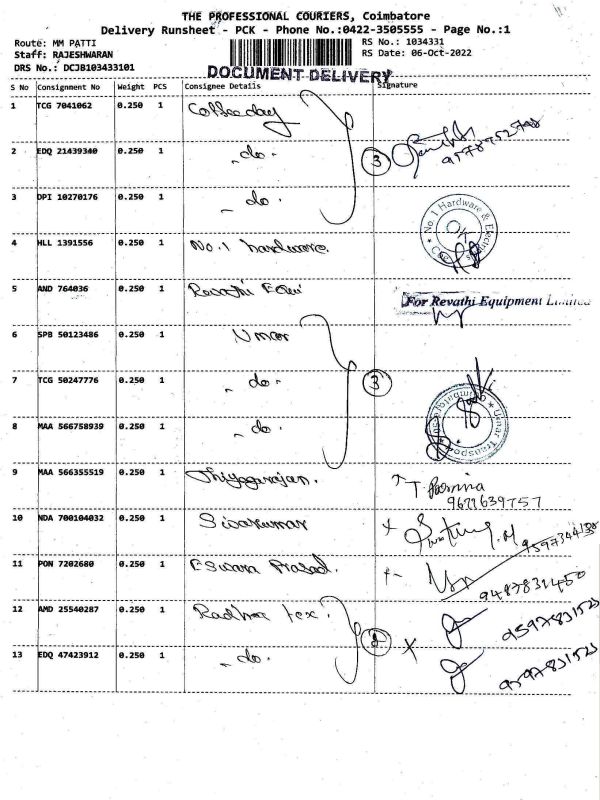 THE PROFESSIONAL COURIERS, Coimbatore
Delivery Runsheet - PCK - Phone No.:0422-3505555 - Page No.:1
Route: MM PATTI
RS No.: 1034331
Staff: RAJESHWARAN
RS Date: 06-Oct-2022
DRS No.: DCJB103433101
DOCUMENT DELIVERY
S No Consignment No Weight PCS Consignee Details Signature
1 TCG 7041062 0.250 1 Coffeeday
2 EDQ 21439340 0.250 1 - do - 3
3 DPI 10270176 0.250 1 - do -
No. 1 Hardware &
4 HLL 1391556 0.250 1 No.1 hardware.
5 AND 764036 0.250 1 Revathi
For Revathi Equipment Limited
6 SPB 50123486 0.250 1 Umar
7 TCG 50247776 0.250 1 - do - 3
8 MAA 566758939 0.250 1 - do -
Umar Transport
9 MAA 566355519 0.250 1 Thiyagarajan.
9671639757
10 NDA 700104032 0.250 1 Sivakumar
11 PON 7202680 0.250 1 Eswara Prasad.
9487831450
12 AMD 25540287 0.250 1 Radha tex. 2
9597831523
13 EDQ 47423912 0.250 1 - do -
9597831523